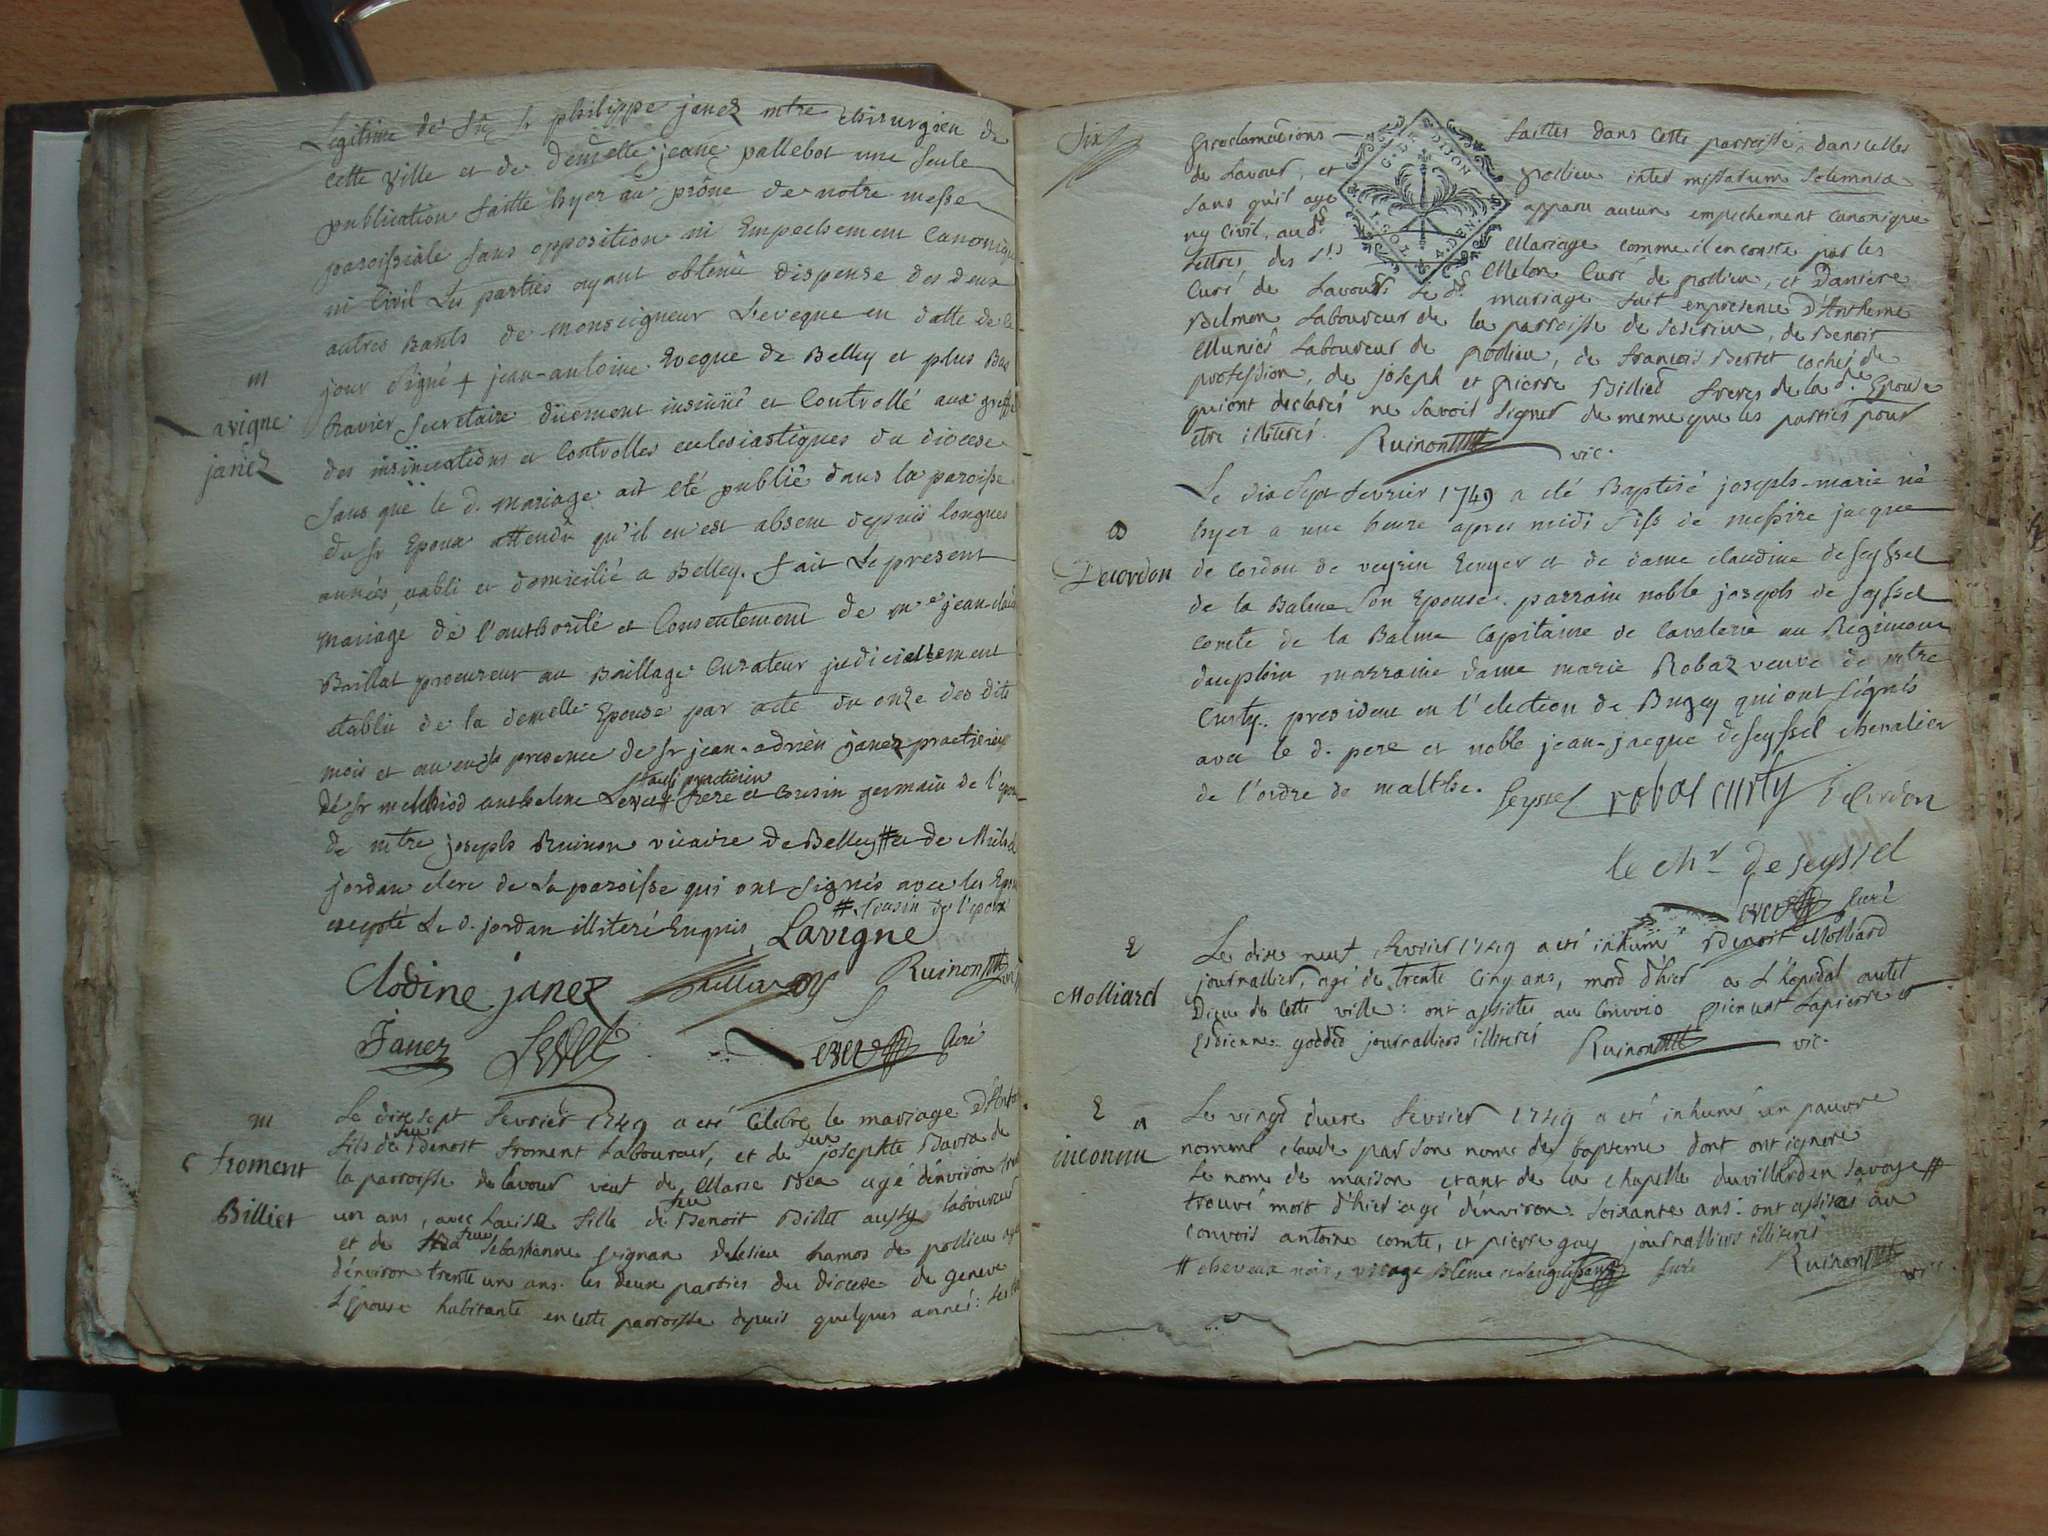 Legitime de feu Sr philippe janez mtre chirurgien de
cette Ville et de demelle jeane pallebot une seule
publication faitte hyer au prône de notre messe
paroissiale sans opposition ni Empechement Canonique
ni Civil Les parties ayant obtenu dispense des deux
autres Bants de monseigneur L'eveque en datte de ce
jour Signé + jean-antoine Eveque de Belley et plus Bas
Ravier Secretaire düement insinüé et Controllé aux greffe
des insinuations et Controlles eclesiastiques du diocese
m
avigne
janez
Sans que le d. mariage ait eté publié dans la paroisse
du Sr Epoux attendu qu'il en est absent depuis longues
années, etabli et domicilié a Belley. fait Le present
mariage de l'authorité et Consentement de me jean-claude
Brillat procureur au Baillage Curateur judiciellement
etablie de la demelle Epouse par acte du onze des dits
mois et an en presence de Sr jean-adrien janez practicien
de Sr melchiod anthelme Levet aussi practicien frere et Cousin germain de l'epouse
de mtre joseph Ruinon vicaire de Belley # et de Michel
jordan clerc de La paroisse qui ont Signés avec les Epoux
excepté Le d. jordan illiteré Enquis # Cousin de l'epoux
Lavigne
Clodine janez Ruinon vic.
Janez Levet evet Curé
m
Froment
Billiet
Le dixsept fevrier 1749 a eté Celebre le mariage d'Antoine
fils de feu Benoit froment Laboureur, et de feu josephte Bavra de
la parroisse de lavour veuf de Marie Bea agé d'environ trente
un ans, avec Louise fille de feu Benoit Billiet aussy laboureur
et de feu Sebastianne guignan de lesieu hamos de pollieu agée
d'environ trente un ans. les deux parties du diocese de geneve
L'Epouse habitante en cette parroisse depuis quelques année: les trois
Six
proclamations faittes dans cette parroisse, dans celles
de Lavour, et pollieu inter missarum solemnia
Sans qu'il aye apparu aucun empechement canonique
ny Civil, aud. Mariage comme il en conste par les
Lettres des Srs Melon Curé de pollieu, et Daniere
Curé de Lavours le dt mariage fait en presence d'Anthelme
G. DE DIJON
1. SOL 4. DEN.
Belmon Laboureur de la parroisse de Ceserieu, de Benoit
Munier Laboureur de pollieu, de francois Bertet cocher de
profession, de joseph et pierre Billied freres de la de Epouse
qui ont declarés ne savoir signer de meme que les parties pour
etre illiterés. Ruinon vic.
B
Decordon
Le dix Sept fevrier 1749 a eté Baptisé joseph-marie né
hyer a une heure apres midi fils de messire jacque
de Cordon de veyrin Ecuyer et de dame claudine de Seyssel
de la Balme Son Epouse. parrain noble joseph de Seyssel
comte de la Balme Capitaine de Cavalerie au Regiment
dauphin marraine dame marie Robaz veuve de mtre
Curty. president en l'election de Bugey qui ont signés
avec le d. pere et noble jean-jacque de Seyssel chevalier
de l'ordre de malthe. Seyssel robas curty de Cordon
le chr de seyssel
evet Curé
E
Molliard
Le dixe neuf fevrier 1749 a eté inhumé Benoit Molliard
journallier, agé de trente Cinq ans, mord d'hier a L'hopidal autel
Dieux de Cette ville: ont assistés au Convois Vincent Lapierre et
Estienne goddet journalliers illiterés Ruinon vic.
E
a
inconnu
Le vingt deuxe fevrier 1749 a eté inhumé un pauvre
nommé claude par son nom de bapteme dont on ignore
Le nom de maison etant de la chapelle duvillard en Savoye #
trouvé mort d'hier agé d'environ Soixante ans: ont assistés au
convois antoine comte, et pierre guy journalliers illiterés
# cheveux noir, visage Bleme et languissant Curé Ruinon vic.